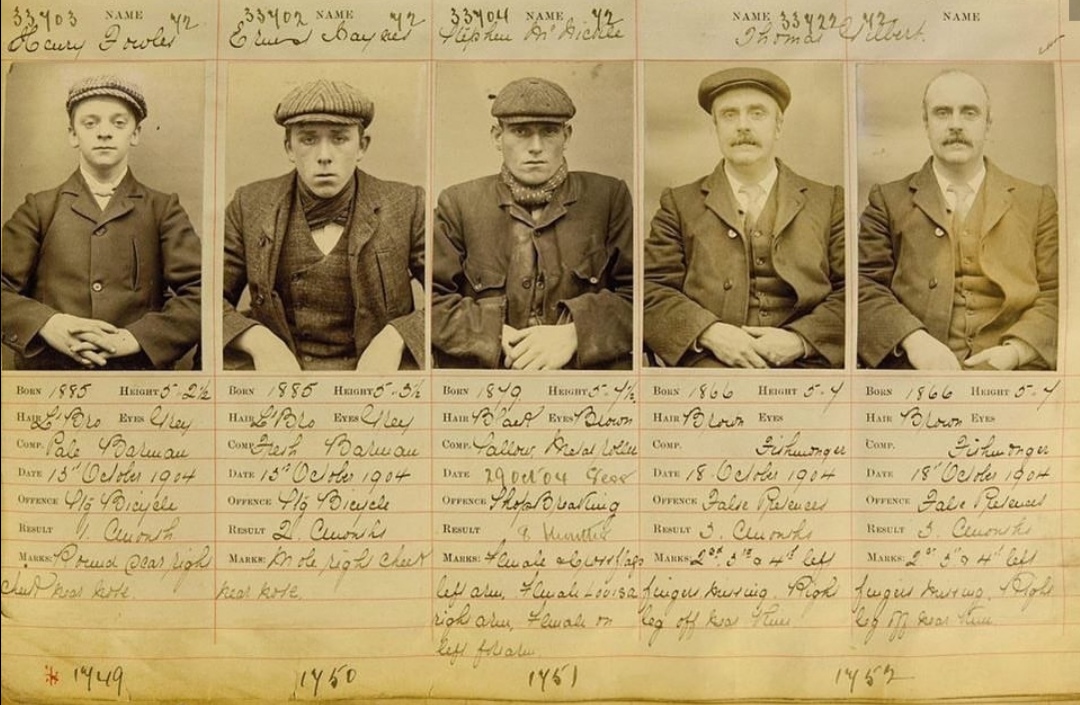 33703 NAME 72
Henry Fowles
33702 NAME 72
Ernest Haynes
33704 NAME 72
Stephen
NAME 33722 72
Thomas
NAME
BORN 1885 HEIGHT 5-2½
HAIR Lt Bro EYES Grey
COMP. Pale Barman
DATE 15th October 1904
OFFENCE Bicycle
RESULT 1. Month
MARKS: Round scar right
cheek near nose.
1749
BORN 1885 HEIGHT 5-5½
HAIR Lt Bro EYES Grey
COMP. Fresh Barman
DATE 15th October 1904
OFFENCE Bicycle
RESULT 2. Months
MARKS: Mole right cheek
near nose.
1750
BORN HEIGHT 5-4½
HAIR Black EYES Brown
COMP. Sallow, Metal roller
DATE 29 Oct 04
OFFENCE Shop Breaking
RESULT
MARKS: Female
left arm, Female Louisa
right arm, Female on
left forearm.
1751
BORN 1866 HEIGHT 5-4
HAIR Brown EYES
COMP. Fishmonger
DATE 18 October 1904
OFFENCE False Pretences
RESULT 3. Months
MARKS: 2nd 3rd & 4th left
fingers missing. Right
leg off near knee
BORN 1866 HEIGHT 5-4
HAIR Brown EYES
COMP. Fishmonger
DATE 18th October 1904
OFFENCE False Pretences
RESULT 3. Months
MARKS: 2nd 3rd & 4th left
fingers missing, Right
leg off near knee
1752